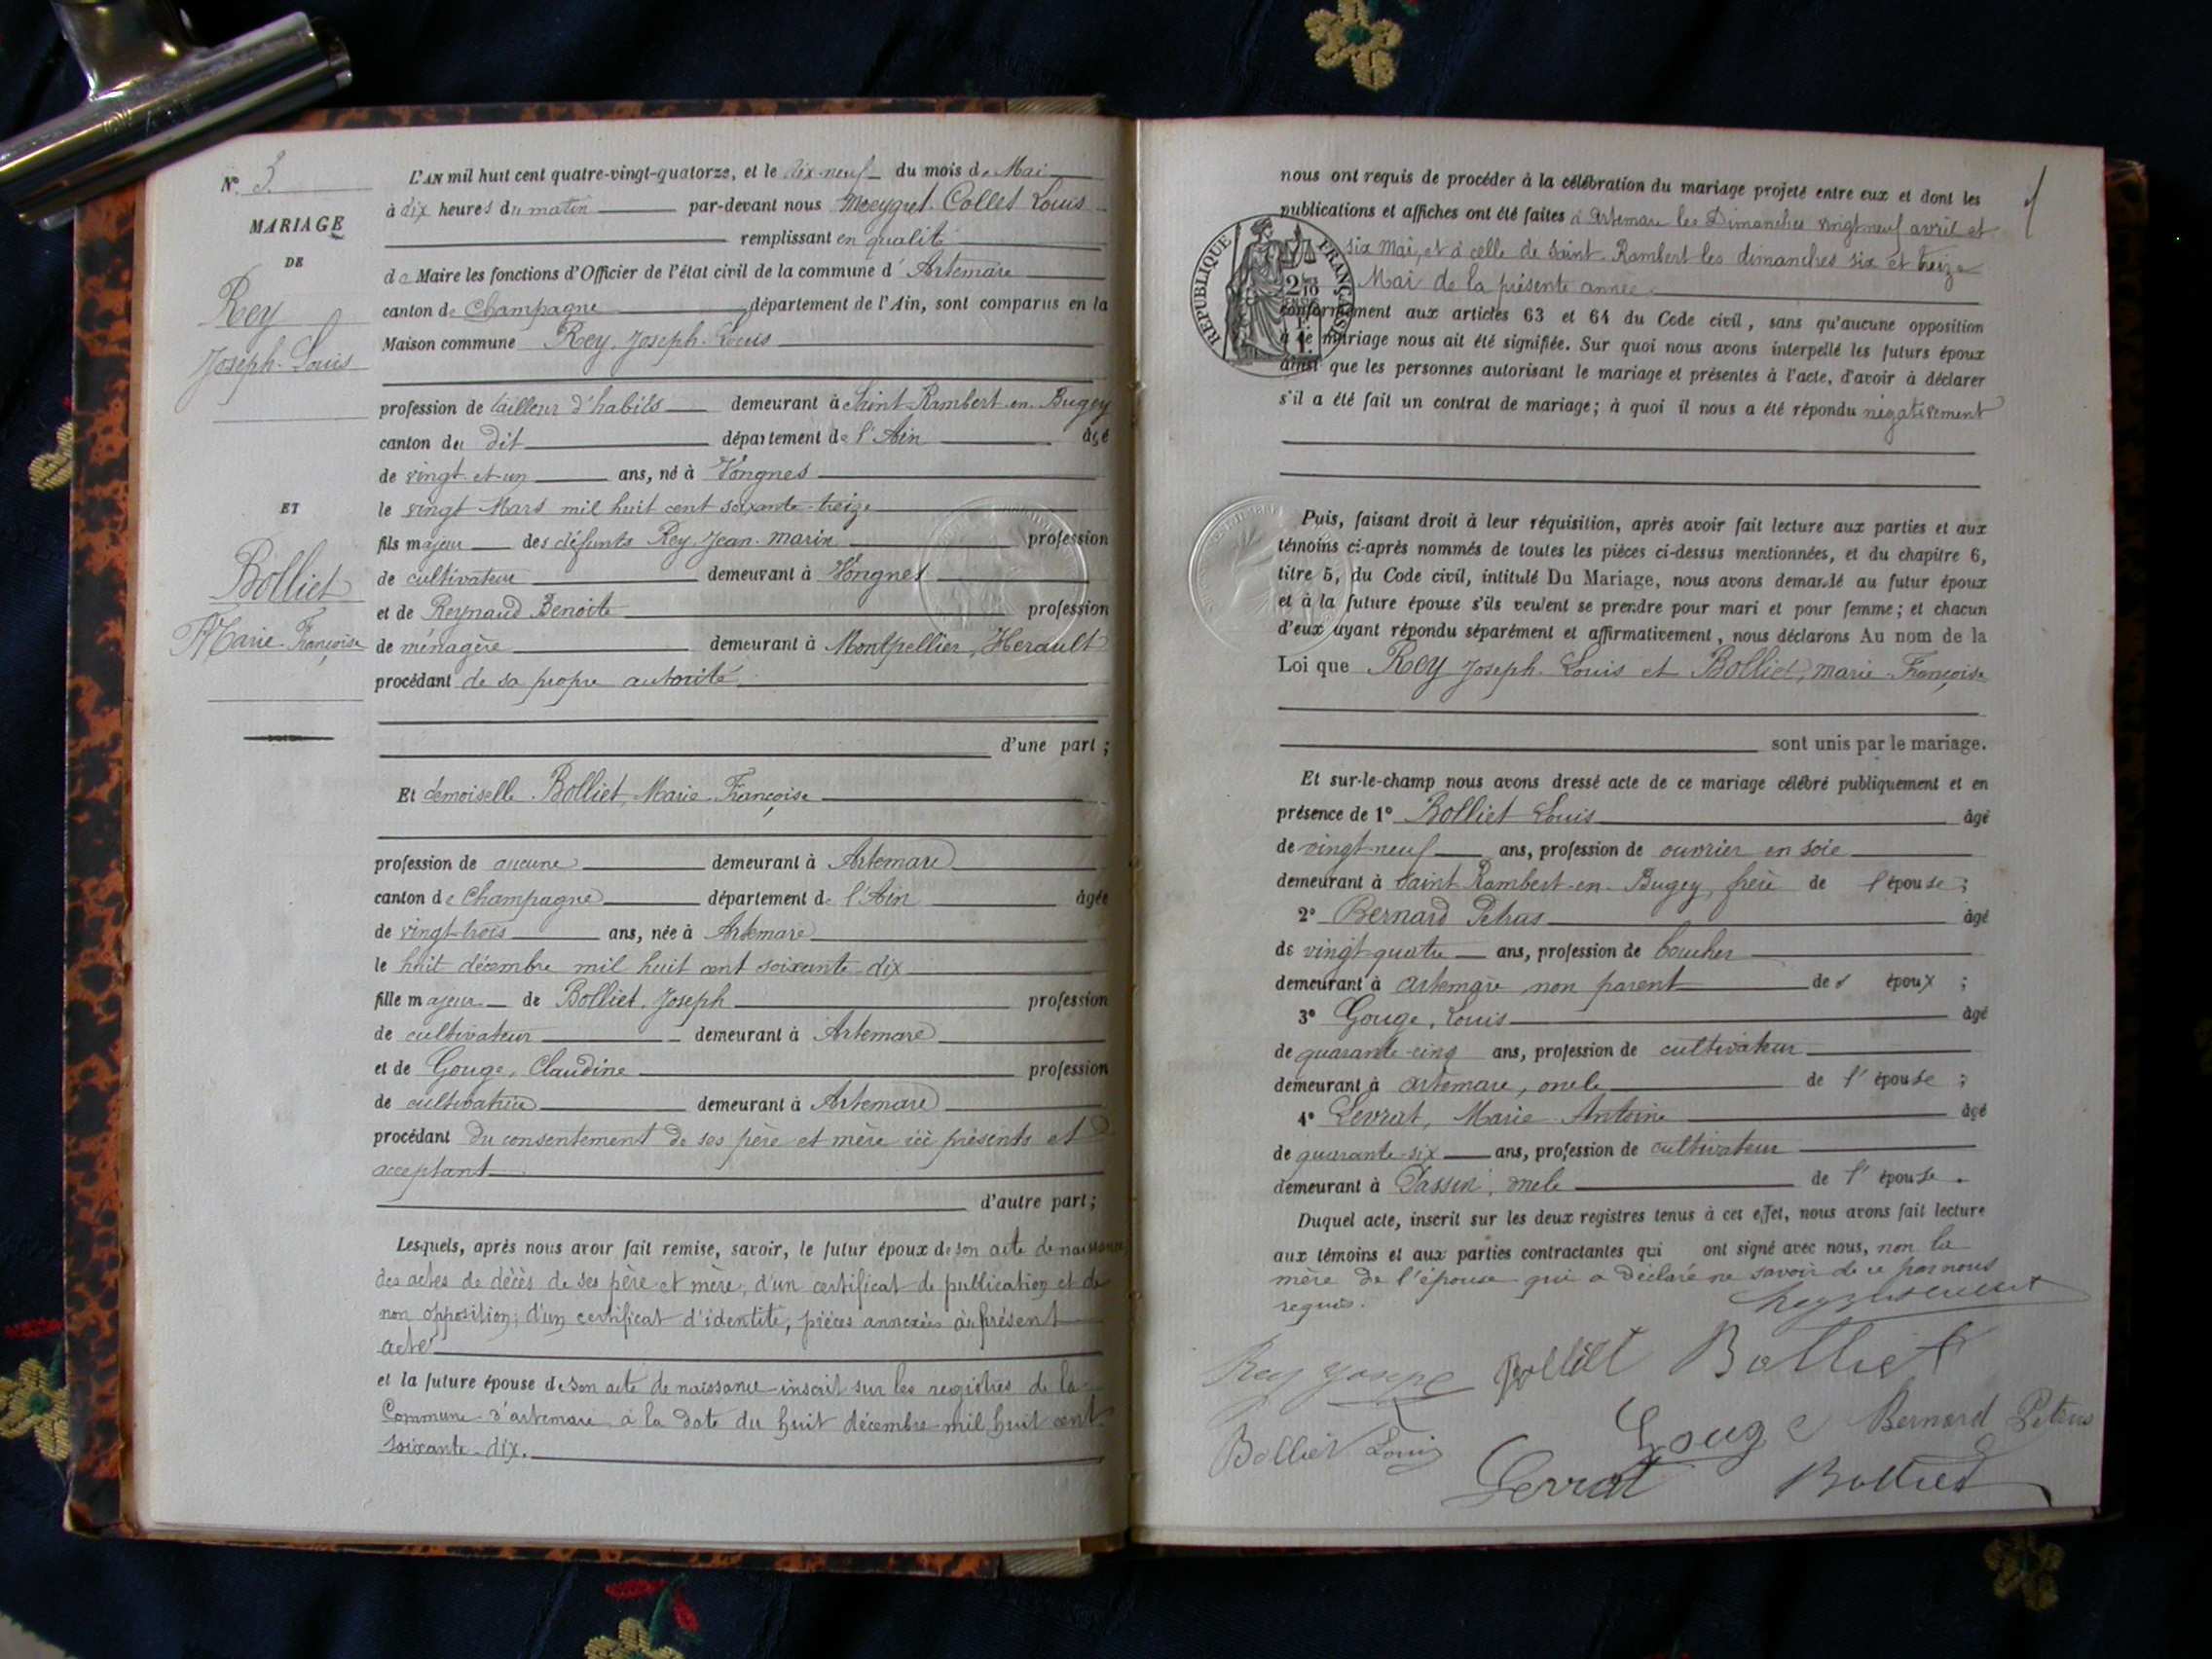 N° 3.
MARIAGE
DE
Rey
Joseph-Louis
ET
Bolliet
Marie-Françoise
L'AN mil huit cent quatre-vingt-quatorze, et le dix-neuf du mois de Mai
à dix heures du matin par-devant nous Meygret-Collet Louis
remplissant en qualité
de Maire les fonctions d'Officier de l'état civil de la commune d'Artemare
canton de Champagne département de l'Ain, sont comparus en la
Maison commune Rey, Joseph-Louis
profession de tailleur d'habits demeurant à Saint-Rambert-en-Bugey
canton du dit département de l'Ain âgé
de vingt-et-un ans, né à Vongnes
le vingt Mars mil huit cent soixante-treize
fils majeur des défunts Rey, Jean-Marin profession
de cultivateur demeurant à Vongnes
et de Reynaud Benoite profession
de ménagère demeurant à Montpellier, Herault
procédant de sa propre autorité
d'une part ;
Et demoiselle Bolliet, Marie-Françoise
profession de aucune demeurant à Artemare
canton de Champagne département de l'Ain âgée
de vingt-trois ans, née à Artemare
le huit décembre mil huit cent soixante-dix
fille majeure de Bolliet, Joseph profession
de cultivateur demeurant à Artemare
et de Gouge, Claudine profession
de cultivatrice demeurant à Artemare
procédant du consentement de ses père et mère ici présents et
acceptant
d'autre part ;
Lesquels, après nous avoir fait remise, savoir, le futur époux de son acte de naissance
des actes de décès de ses père et mère, d'un certificat de publication et de
non opposition; d'un certificat d'identité, pièces annexées au présent
acte
et la future épouse de son acte de naissance inscrit sur les registres de la
Commune d'artemare à la date du huit décembre mil huit cent
soixante-dix.
nous ont requis de procéder à la célébration du mariage projeté entre eux et dont les
publications et affiches ont été faites à Artemare les Dimanches vingt neuf avril et
six mai, et à celle de Saint-Rambert les dimanches six et treize
Mai de la présente année
RÉPUBLIQUE FRANÇAISE
conformément aux articles 63 et 64 du Code civil, sans qu'aucune opposition
à ce mariage nous ait été signifiée. Sur quoi nous avons interpellé les futurs époux
ainsi que les personnes autorisant le mariage et présentes à l'acte, d'avoir à déclarer
s'il a été fait un contrat de mariage ; à quoi il nous a été répondu négativement
Puis, faisant droit à leur réquisition, après avoir fait lecture aux parties et aux
témoins ci-après nommés de toutes les pièces ci-dessus mentionnées, et du chapitre 6,
titre 5, du Code civil, intitulé Du Mariage, nous avons demandé au futur époux
et à la future épouse s'ils veulent se prendre pour mari et pour femme ; et chacun
d'eux ayant répondu séparément et affirmativement, nous déclarons Au nom de la
Loi que Rey Joseph-Louis et Bolliet, Marie-Françoise
sont unis par le mariage.
Et sur-le-champ nous avons dressé acte de ce mariage célébré publiquement et en
présence de 1° Bolliet Louis âgé
de vingt-neuf ans, profession de ouvrier en soie
demeurant à Saint Rambert-en-Bugey, frère de l'épouse ;
2° Bernard Petrus âgé
de vingt-quatre ans, profession de boucher
demeurant à Artemare non parent des époux ;
3° Gouge, Louis âgé
de quarante-cinq ans, profession de cultivateur
demeurant à Artemare, oncle de l'épouse ;
4° Levrat, Marie-Antoine âgé
de quarante-six ans, profession de cultivateur
demeurant à Passin, oncle de l'épouse.
Duquel acte, inscrit sur les deux registres tenus à cet effet, nous avons fait lecture
aux témoins et aux parties contractantes qui ont signé avec nous, non la
mère de l'épouse qui a déclaré ne savoir de ce par nous
requis.
Rey Bolliet Bolliet
Bolliet Louis Gouge Bernard Petrus
Levrat Bolliet